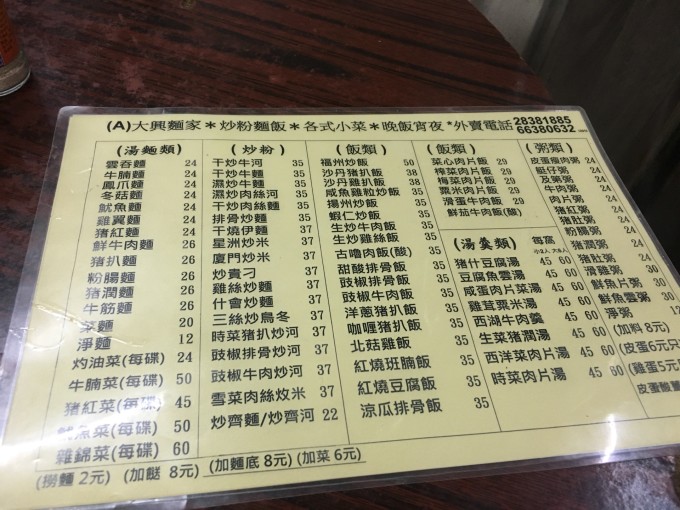 (A)大興麵家＊炒粉麵飯＊各式小菜＊晚飯宵夜*外賣電話 28381885
66380632
(湯麵類)
雲吞麵 24
牛腩麵 24
鳳爪麵 24
冬菇麵 24
魷魚麵 24
雞翼麵 24
豬紅麵 24
鮮牛肉麵 26
豬扒麵 26
粉腸麵 26
豬潤麵 26
牛筋麵 26
菜麵 20
淨麵 12
灼油菜(每碟) 24
牛腩菜(每碟) 50
豬紅菜(每碟) 45
魷魚菜(每碟) 50
雜錦菜(每碟) 60
(炒粉)
干炒牛河 35
干炒牛麵 35
濕炒牛河 35
濕炒肉絲河 35
干炒肉絲麵 35
排骨炒麵 35
干燒伊麵 35
星洲炒米 37
廈門炒米 37
炒貴刁 37
雞絲炒麵 37
什會炒麵 37
三絲炒烏冬 37
時菜豬扒炒河 37
豉椒排骨炒河 37
豉椒牛肉炒河 37
雪菜肉絲炆米 37
炒齋麵/炒齋河 22
(飯類)
福州炒飯 50
沙丹豬扒飯 38
沙丹雞扒飯 38
咸魚雞粒炒飯 35
揚州炒飯 35
蝦仁炒飯 35
生炒牛肉飯 35
生炒雞絲飯 35
古嚕肉飯(酸) 35
甜酸排骨飯 35
豉椒排骨飯 35
豉椒牛肉飯 35
洋蔥豬扒飯 35
咖喱豬扒飯 35
北菇雞飯 35
紅燒班腩飯 35
紅燒豆腐飯 35
涼瓜排骨飯 35
(飯類)
菜心肉片飯 29
榨菜肉片飯 29
梅菜肉片飯 29
粟米肉片飯 29
滑蛋牛肉飯 29
鮮茄牛肉飯(酸)
(湯羹類) 每窩
小2人 大4人
豬什豆腐湯 45 60
豆腐魚雲湯 45 60
咸蛋肉片菜湯 45 60
雞茸粟米湯 45 60
西湖牛肉羹 45 60
生菜豬潤湯 45 60
西洋菜肉片湯 45 60
時菜肉片湯 45 60
(粥類)
皮蛋瘦肉粥 24
艇仔粥 24
及第粥 24
牛肉粥 24
肉片粥 24
豬紅粥 24
豬肚粥 24
粉腸粥 24
豬潤粥 24
滑雞粥 30
鮮魚片粥 30
鮮魚雲粥 30
淨粥 12
(加料 8元)
(皮蛋 6元
(雞蛋 5元
皮蛋酸薑
(撈麵 2元) (加餸 8元) (加麵底 8元) (加菜 6元)